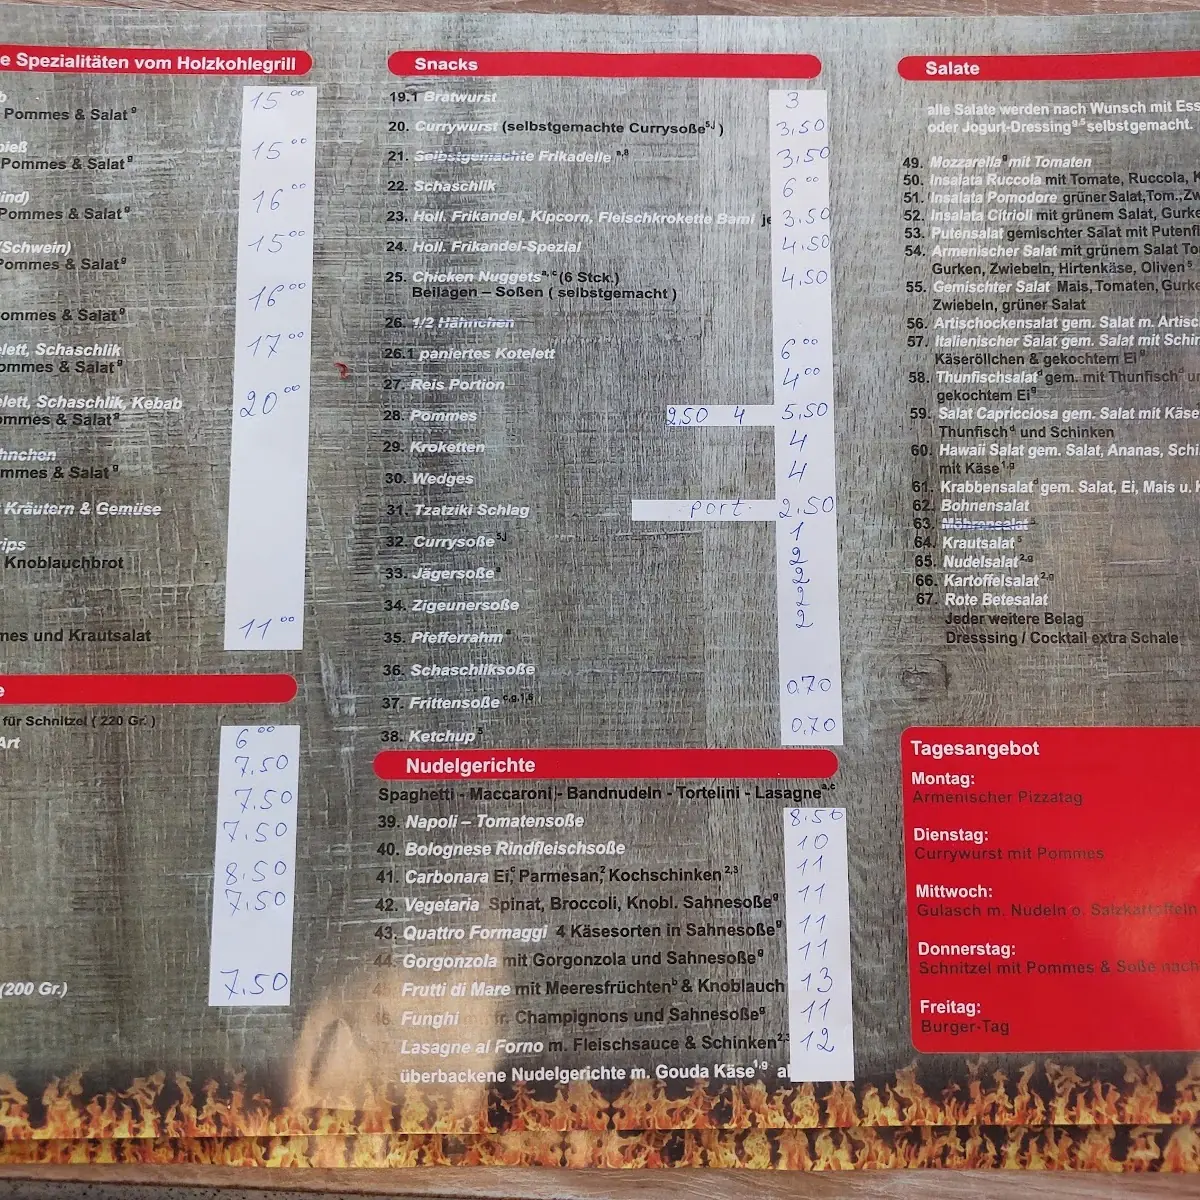 e Spezialitäten vom Holzkohlegrill
b
Pommes & Salat g 15 00
pieß
Pommes & Salat g 15 00
ind)
Pommes & Salat g 16 00
(Schwein)
Pommes & Salat g 15 00
ommes & Salat g 16 00
elett, Schaschlik
ommes & Salat g 17 00
elett, Schaschlik, Kebab
ommes & Salat g 20 00
hnchen
mmes & Salat g
Kräutern & Gemüse
rips
Knoblauchbrot
mes und Krautsalat 11 00
e
für Schnitzel ( 220 Gr. )
Art 6 00
7,50
7,50
7,50
8,50
7,50
(200 Gr.) 7,50
Snacks
19.1 Bratwurst 3
20. Currywurst (selbstgemachte Currysoße 5,j ) 3,50
21. Selbstgemachte Frikadelle a,8 3,50
22. Schaschlik 6 00
23. Holl. Frikandel, Kipcorn, Fleischkrokette Bami je 3,50
24. Holl. Frikandel-Spezial 4,50
25. Chicken Nuggets a,c (6 Stck.) 4,50
Beilagen – Soßen ( selbstgemacht )
26. 1/2 Hähnchen
26.1 paniertes Kotelett 6 00
27. Reis Portion 4 00
28. Pommes 2,50 4 5,50
29. Kroketten 4
30. Wedges 4
31. Tzatziki Schlag port. 2,50
32. Currysoße 5,j 1
33. Jägersoße a 2
2
34. Zigeunersoße 2
35. Pfefferrahm 2
36. Schaschliksoße
37. Frittensoße c,g,1,6 0,70
38. Ketchup 5 0,70
Nudelgerichte
Spaghetti - Maccaroni - Bandnudeln - Tortelini - Lasagne a,c
39. Napoli – Tomatensoße 8,50
40. Bolognese Rindfleischsoße 10
41. Carbonara Ei, c Parmesan, 2 Kochschinken 2,3 11
42. Vegetaria Spinat, Broccoli, Knobl. Sahnesoße g 11
43. Quattro Formaggi 4 Käsesorten in Sahnesoße g 11
44. Gorgonzola mit Gorgonzola und Sahnesoße g 11
Frutti di Mare mit Meeresfrüchten b & Knoblauch 13
Funghi fr. Champignons und Sahnesoße g 11
Lasagne al Forno m. Fleischsauce & Schinken 2,3 12
überbackene Nudelgerichte m. Gouda Käse 1,g
Salate
alle Salate werden nach Wunsch mit Ess
oder Jogurt-Dressing g,5 selbstgemacht.
49. Mozzarella g mit Tomaten
50. Insalata Ruccola mit Tomate, Ruccola, K
51. Insalata Pomodore grüner Salat,Tom.,Zw
52. Insalata Citrioli mit grünem Salat, Gurke
53. Putensalat gemischter Salat mit Putenfl
54. Armenischer Salat mit grünem Salat To
Gurken, Zwiebeln, Hirtenkäse, Oliven 5
55. Gemischter Salat Mais, Tomaten, Gurke
Zwiebeln, grüner Salat
56. Artischockensalat gem. Salat m. Artisc
57. Italienischer Salat gem. Salat mit Schin
Käseröllchen & gekochtem Ei g
58. Thunfischsalat d gem. mit Thunfisch d u
gekochtem Ei g
59. Salat Capricciosa gem. Salat mit Käse
Thunfisch d und Schinken
60. Hawaii Salat gem. Salat, Ananas, Schi
mit Käse 1,g
61. Krabbensalat gem. Salat, Ei, Mais u. K
62. Bohnensalat
63. Möhrensalat
64. Krautsalat 5
65. Nudelsalat 2,g
66. Kartoffelsalat 2,g
67. Rote Betesalat
Jeder weitere Belag
Dresssing / Cocktail extra Schale
Tagesangebot
Montag:
Armenischer Pizzatag
Dienstag:
Currywurst mit Pommes
Mittwoch:
Gulasch m. Nudeln o. Salzkartoffeln
Donnerstag:
Schnitzel mit Pommes & Soße nach
Freitag:
Burger-Tag